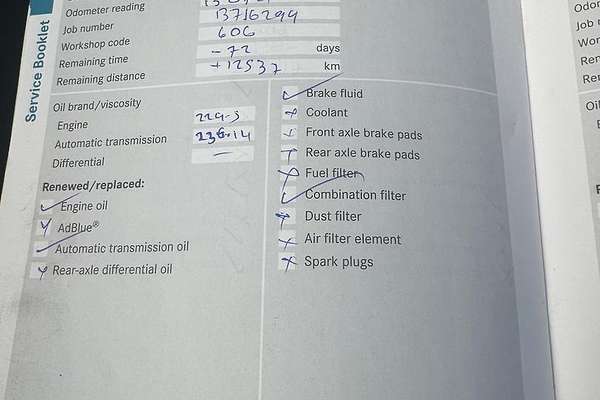 Service Booklet
Odometer reading
Job number 13716299
Workshop code 606
Remaining time - 72 days
Remaining distance +12537 km
Oil brand/viscosity
Engine 229.5
Automatic transmission 236.14
Differential —
Renewed/replaced:
Engine oil
AdBlue®
Automatic transmission oil
Rear-axle differential oil
Brake fluid
Coolant
Front axle brake pads
Rear axle brake pads
Fuel filter
Combination filter
Dust filter
Air filter element
Spark plugs
Odor
Job
Wor
Re
Re
Oil